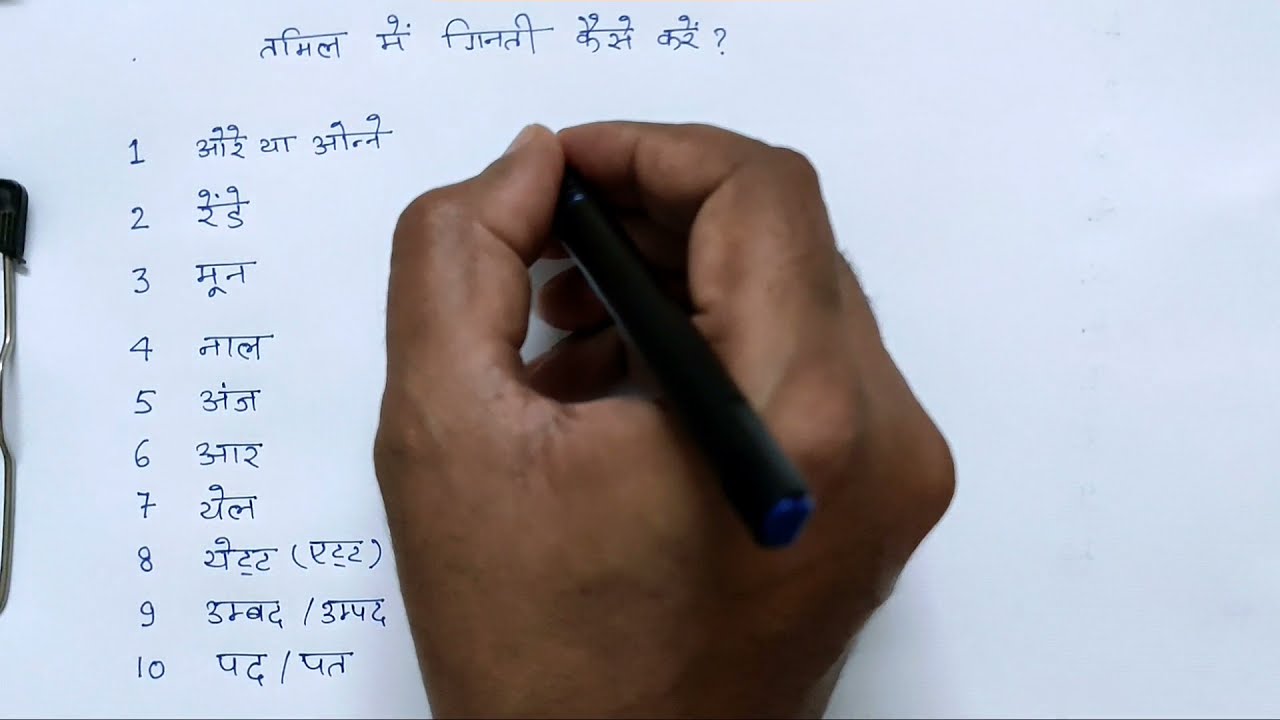 तमिल में गिनती कैसे करें ?
1 ओरे या ओन्ने
2 रेंडे
3 मून
4 नाल
5 अंज
6 आर
7 येल
8 येट्ट (एट्ट)
9 उम्बद / उम्पद
10 पद / पत